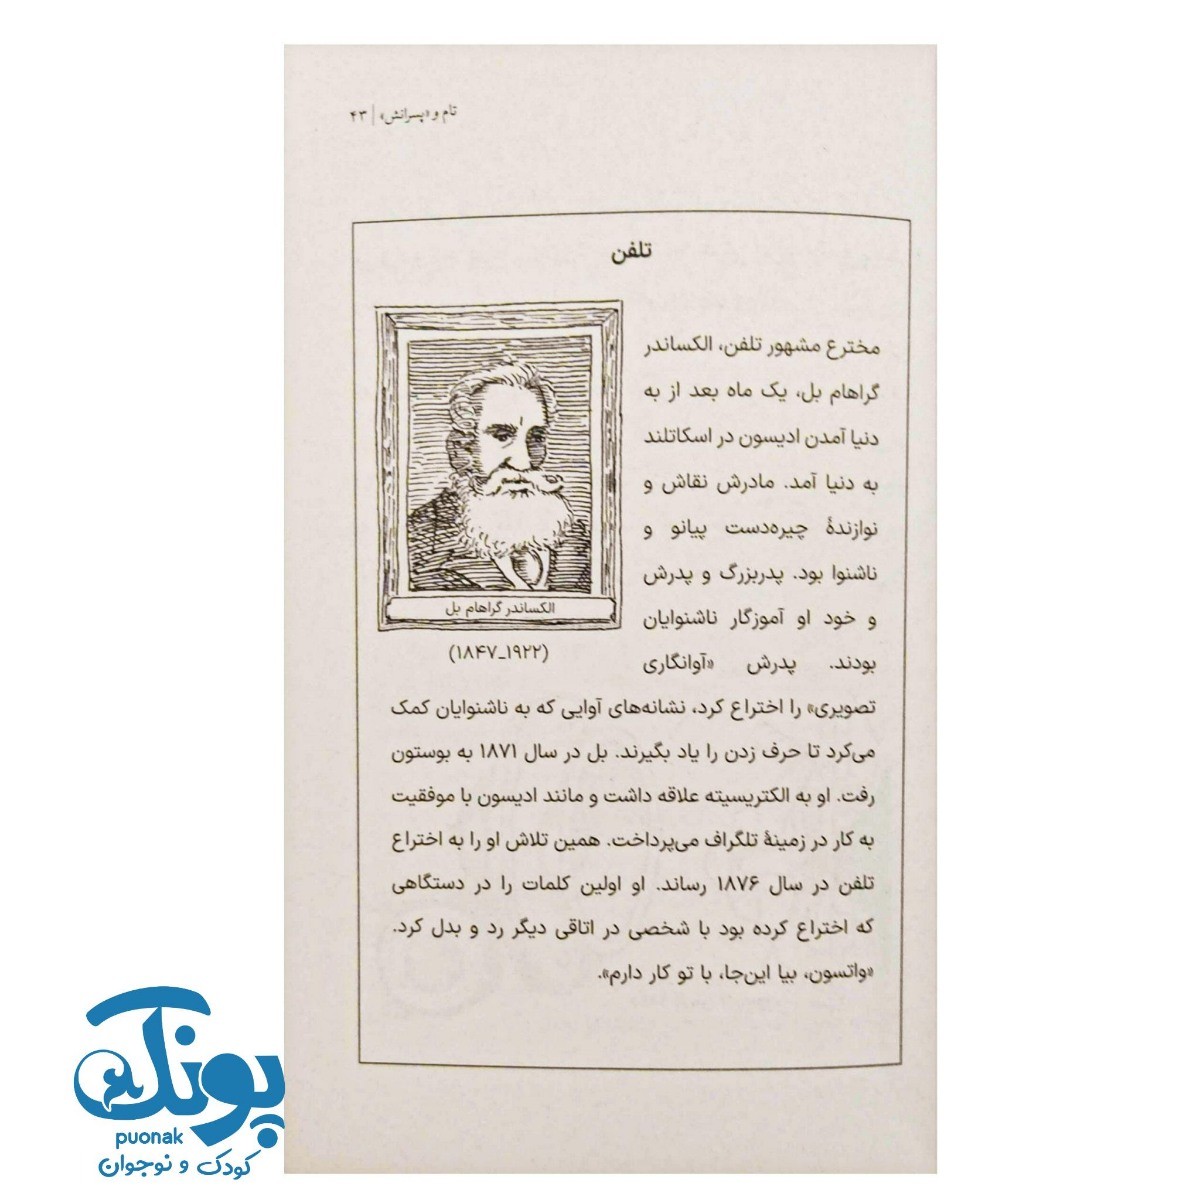 تام و «پسرانش» | ۴۳
تلفن
مخترع مشهور تلفن، الکساندر
گراهام بل، یک ماه بعد از به
دنیا آمدن ادیسون در اسکاتلند
به دنیا آمد. مادرش نقاش و
نوازندهٔ چیره‌دست پیانو و
ناشنوا بود. پدربزرگ و پدرش
و خود او آموزگار ناشنوایان
بودند. پدرش «آوانگاری
الکساندر گراهام بل
(۱۸۴۷_۱۹۲۲)
تصویری» را اختراع کرد، نشانه‌های آوایی که به ناشنوایان کمک
می‌کرد تا حرف زدن را یاد بگیرند. بل در سال ۱۸۷۱ به بوستون
رفت. او به الکتریسیته علاقه داشت و مانند ادیسون با موفقیت
به کار در زمینهٔ تلگراف می‌پرداخت. همین تلاش او را به اختراع
تلفن در سال ۱۸۷۶ رساند. او اولین کلمات را در دستگاهی
که اختراع کرده بود با شخصی در اتاقی دیگر رد و بدل کرد.
«واتسون، بیا این‌جا، با تو کار دارم».
پونک
puonak
کودک و نوجوان